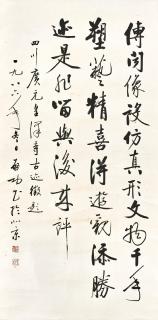 傳聞像設仿真形文物千年
塑藝精喜得遊觀添勝
迹是非留與後來評
四川廣元皇澤寺古迹徵題
一九八六年春日啟功書於北京